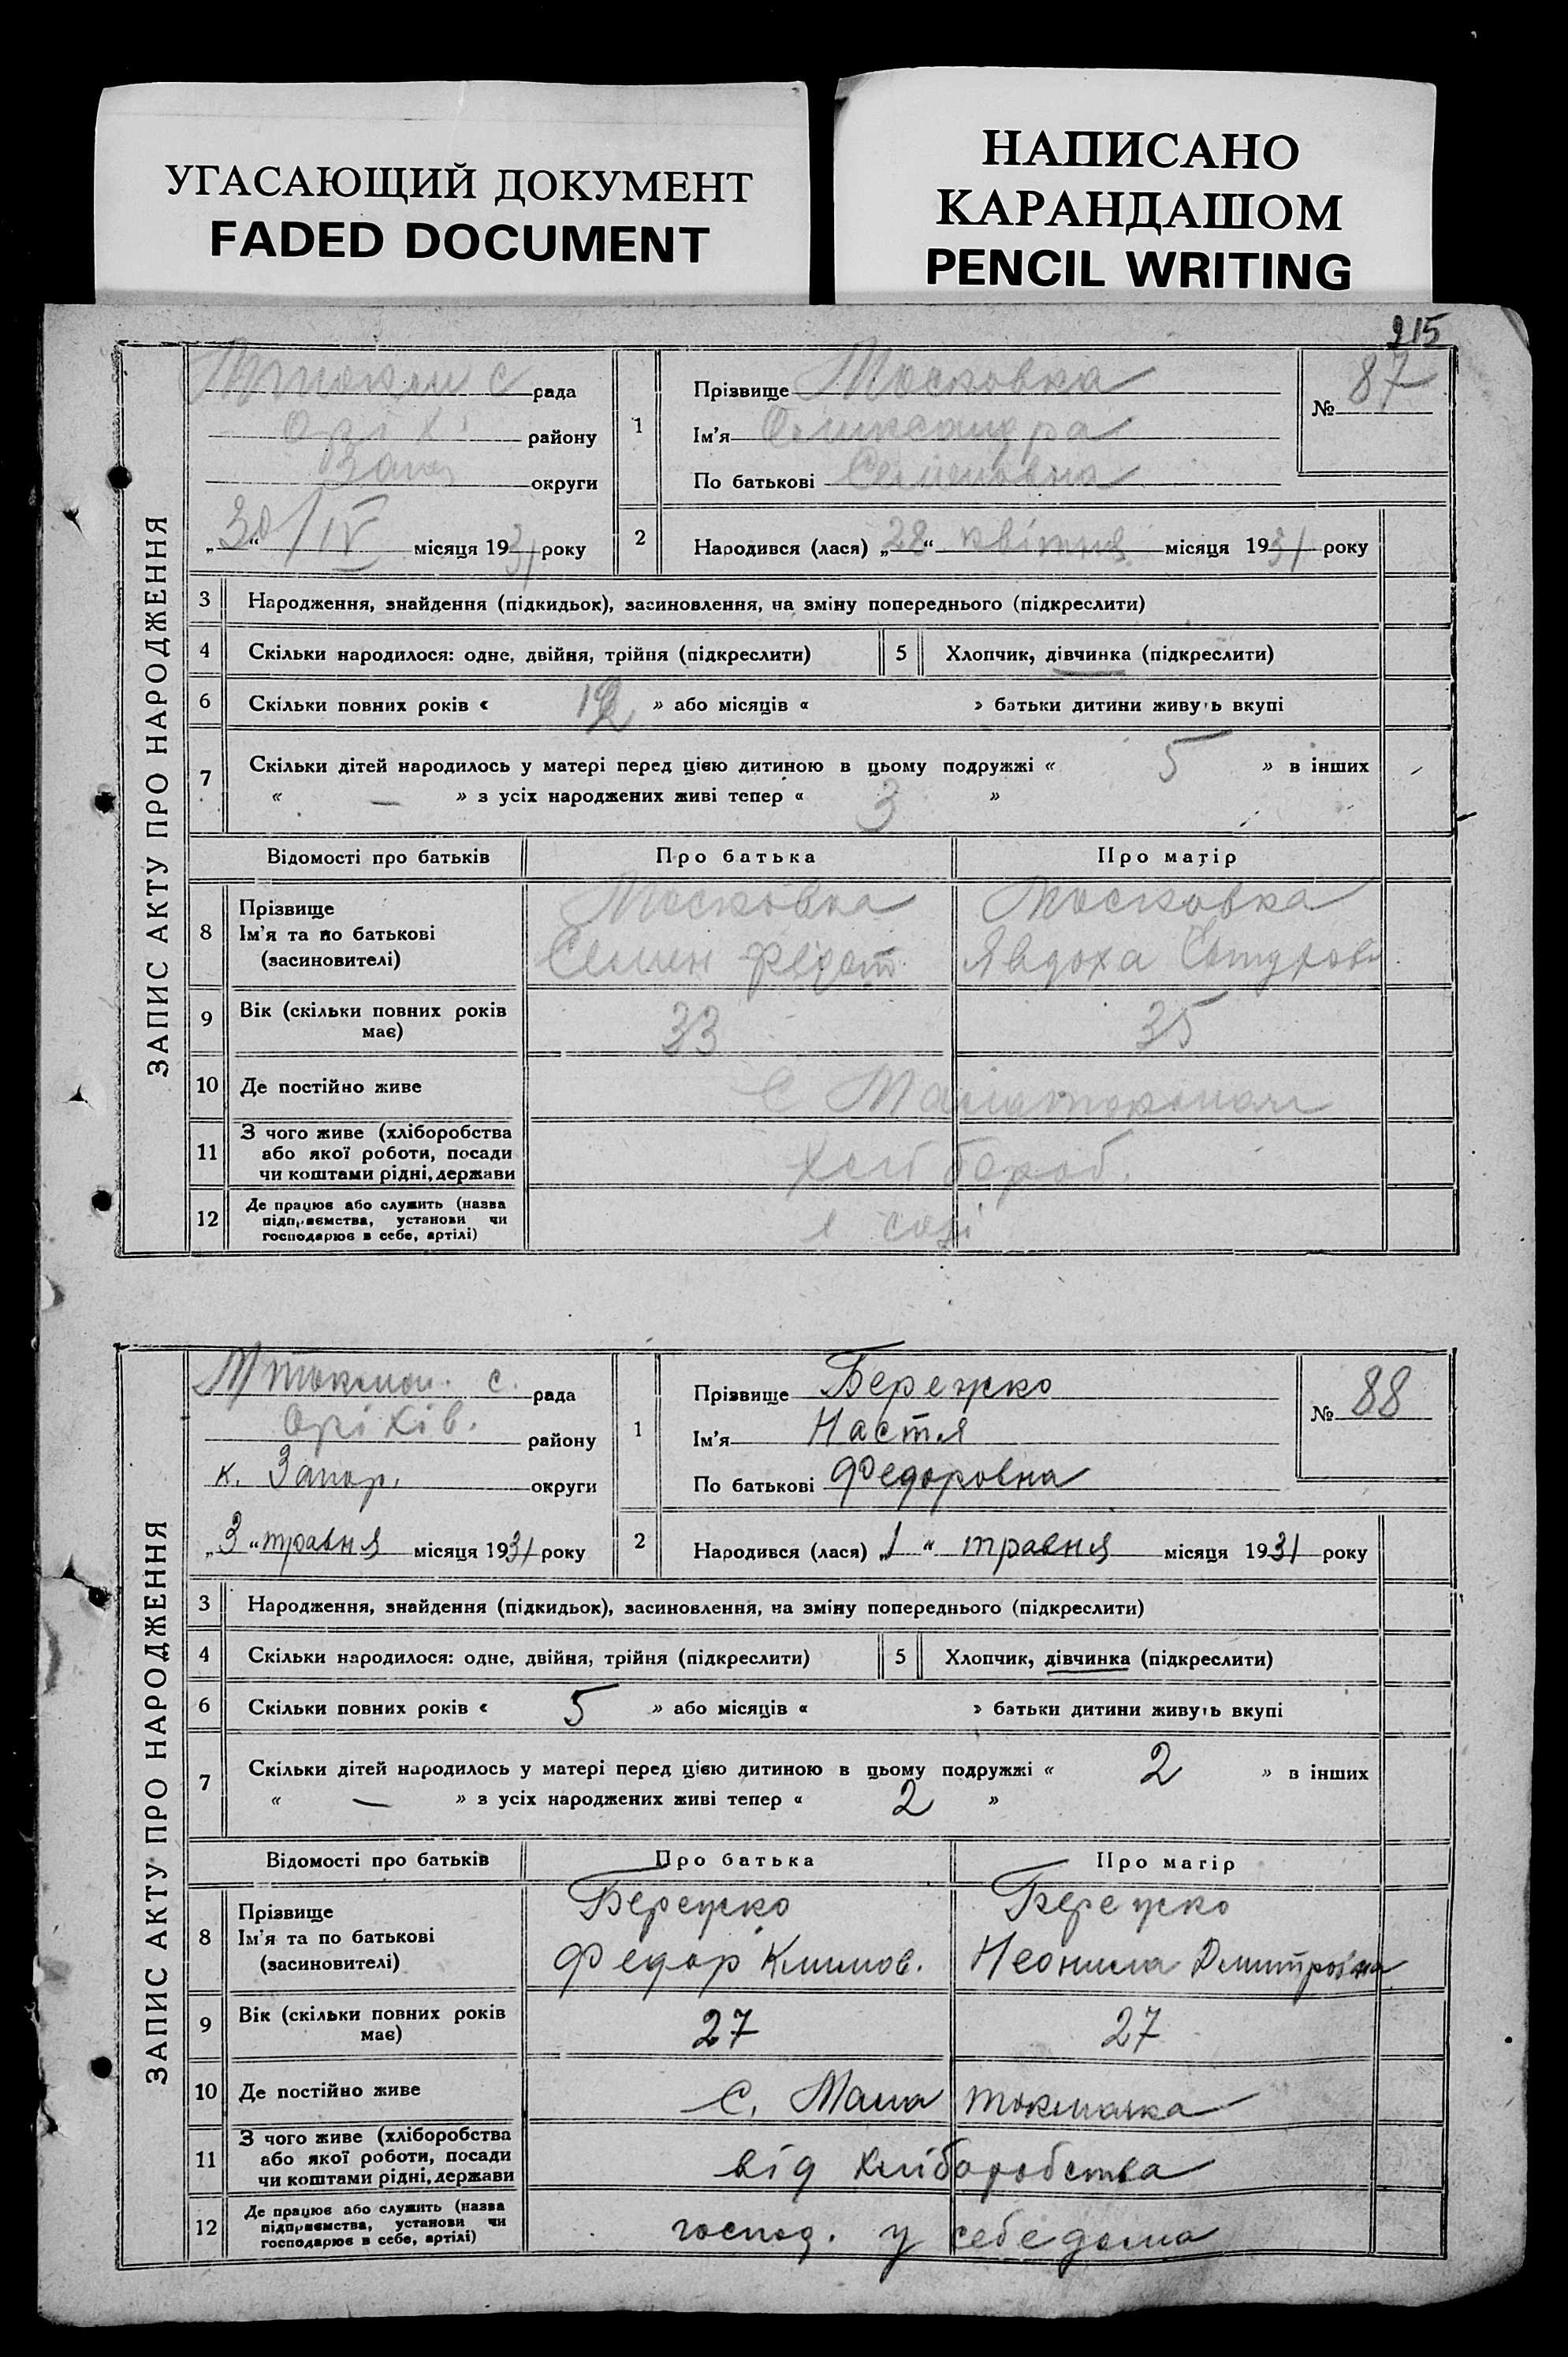 УГАСАЮЩИЙ ДОКУМЕНТ
FADED DOCUMENT
НАПИСАНО
КАРАНДАШОМ
PENCIL WRITING
215
ЗАПИС АКТУ ПРО НАРОДЖЕННЯ
с рада
Оріх. району
Запор округи
„30“/IV місяця 1931 року
1
Прізвище Московка
Ім'я Олександра
По батькові Семеновна
№ 87
2
Народився (лася) „28“ квітня місяця 1931 року
3 Народження, знайдення (підкидьок), засиновлення, на зміну попереднього (підкреслити)
4 Скільки народилося: одне, двійня, трійня (підкреслити) 5 Хлопчик, дівчинка (підкреслити)
6 Скільки повних років « 12 » або місяців « » батьки дитини живуть вкупі
7 Скільки дітей народилось у матері перед цією дитиною в цьому подружжі « 5 » в інших
« — » з усіх народжених живі тепер « 3 »
Відомості про батьків Про батька Про матір
8 Прізвище
Ім'я та по батькові
(засиновителі)
Московка
Семен Федот
Московка
Явдоха
9 Вік (скільки повних років
має)
33 35
10 Де постійно живе
С
11 З чого живе (хліборобства
або якої роботи, посади
чи коштами рідні, держави
Хлібороб.
12 Де працює або служить (назва
підприємства, установи чи
господарює в себе, артілі)
созі
ЗАПИС АКТУ ПРО НАРОДЖЕННЯ
Мтокмач. с. рада
Оріхів. району
к. Запор. округи
„3“ травня місяця 1931 року
1
Прізвище Бережко
Ім'я Настя
По батькові Федоровна
№ 88
2
Народився (лася) „1“ травня місяця 1931 року
3 Народження, знайдення (підкидьок), засиновлення, на зміну попереднього (підкреслити)
4 Скільки народилося: одне, двійня, трійня (підкреслити) 5 Хлопчик, дівчинка (підкреслити)
6 Скільки повних років « 5 » або місяців « » батьки дитини живуть вкупі
7 Скільки дітей народилось у матері перед цією дитиною в цьому подружжі « 2 » в інших
« — » з усіх народжених живі тепер « 2 »
Відомості про батьків Про батька Про матір
8 Прізвище
Ім'я та по батькові
(засиновителі)
Бережко
Федор Климов.
Бережко
Неонила Дмитровна
9 Вік (скільки повних років
має)
27 27
10 Де постійно живе
С. Мала токмачка
11 З чого живе (хліборобства
або якої роботи, посади
чи коштами рідні, держави
від хліборобства
12 Де працює або служить (назва
підприємства, установи чи
господарює в себе, артілі)
господ. у себе дома